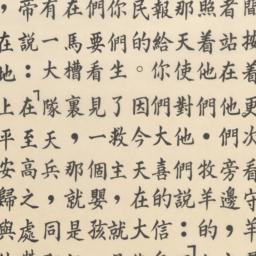 間按着更次看守羊
者站在他們旁邊，
照着他們・牧羊的
那天使對他們說：
報給你們大喜的信
民的。因今天在大
你們生了救主，就
們要看見一個嬰孩
在馬槽裏，那就是
有一大隊天兵，同
帶說：「在至高之處
，在地上平安歸與